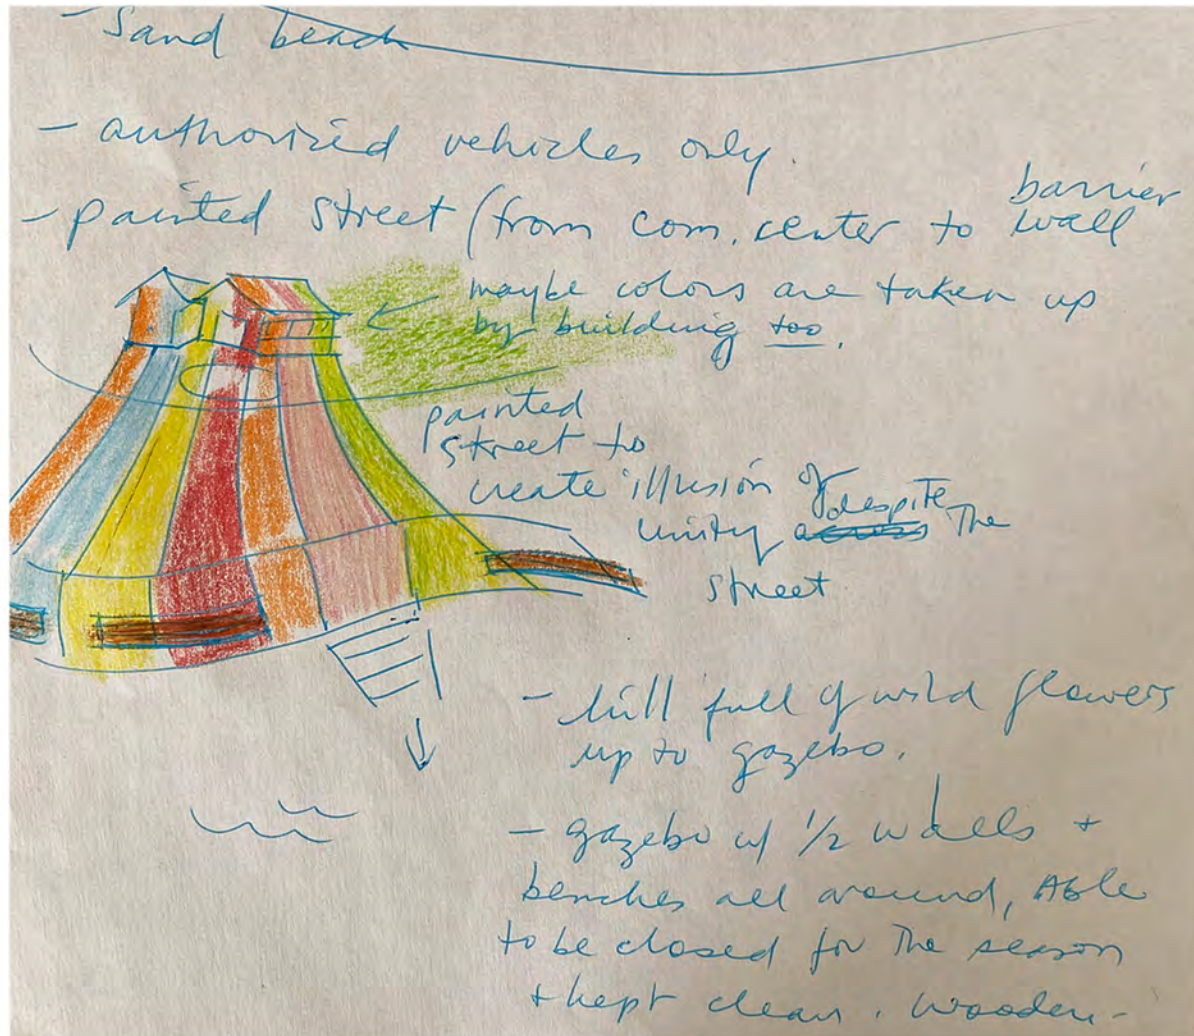 - Sand beach
- authorized vehicles only.
- painted street (from com. center to barrier wall
maybe colors are taken up
by building too.
painted
street to
create illusion of
unity despite the
street
- hill full of wild flowers
up to gazebo.
- gazebo w/ 1/2 walls +
benches all around, Able
to be closed for the season
+ kept clean. wooden-